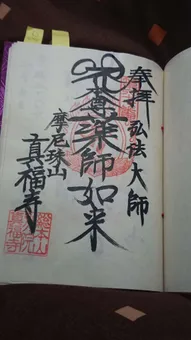 奉拝
弘法大師
薬師如来
摩尼珠山
真福寺